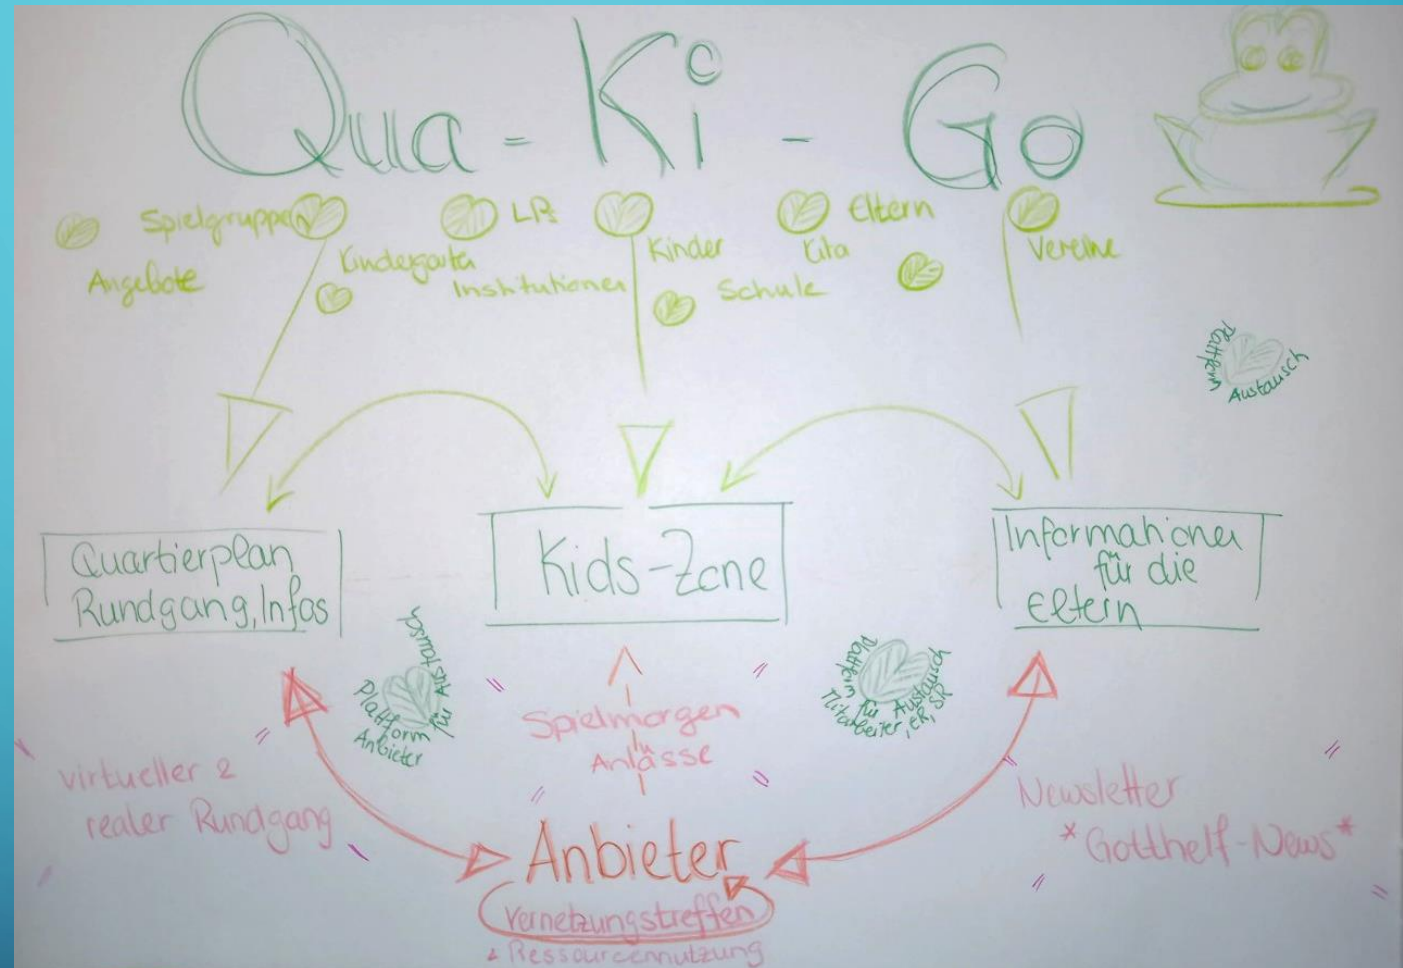 Qua - Ki - Go
Spielgruppen
LPs
Eltern
Angebote
Kindergarten
Institutionen
Kinder
Schule
Kita
Vereine
Plattform
Austausch
Quartierplan
Rundgang, Infos
Kids-Zone
Informationen
für die
Eltern
Plattform für Austausch
Anbieter
Plattform für Austausch
Mitarbeiter, ER, SR
Spielmorgen
Anlässe
virtueller &
realer Rundgang
Newsletter
*Gotthelf-News*
Anbieter
Vernetzungstreffen
& Ressourcennutzung